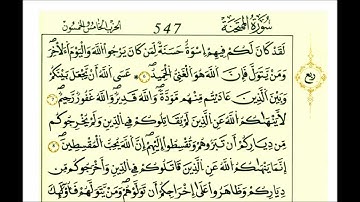 سُورَةُ الْمُمْتَحِنَةِ 547 الحِزْبُ الخَامِسُ وَالخَمْسُونَ
لَقَدْ كَانَ لَكُمْ فِيهِمُۥٓ إِسْوَةٌ حَسَنَةٌ لِّمَن كَانَ يَرْجُواْ اللَّهَ وَالْيَوْمَ الَاخِرَ
وَمَنْ يَّتَوَلَّ فَإِنَّ اللَّهَ هُوَ الْغَنِيُّ الْحَمِيدُ ٦ عَسَى اللَّهُ أَنْ يَّجْعَلَ بَيْنَكُمْ
وَبَيْنَ الَّذِينَ عَادَيْتُم مِّنْهُم مَّوَدَّةً وَاللَّهُ قَدِيرٌ وَاللَّهُ غَفُورٌ رَّحِيمٌ ٧
لَّا يَنْهَىٰكُمُ اللَّهُ عَنِ الَّذِينَ لَمْ يُقَٰتِلُوكُمْ فِي الدِّينِ وَلَمْ يُخْرِجُوكُم
مِّن دِيَٰرِكُمُۥٓ أَن تَبَرُّوهُمْ وَتُقْسِطُوٓاْ إِلَيْهِمُۥٓ إِنَّ اللَّهَ يُحِبُّ الْمُقْسِطِينَ ٨
إِنَّمَا يَنْهَىٰكُمُ اللَّهُ عَنِ الَّذِينَ قَٰتَلُوكُمْ فِي الدِّينِ وَأَخْرَجُوكُم
مِّن دِيَٰرِكُمْ وَظَٰهَرُواْ عَلَىٰٓ إِخْرَاجِكُمُۥٓ أَن تَوَلَّوْهُمْ وَمَنْ يَّتَوَلَّهُمْ فَأُوْلَٰٓئِكَ
ربع